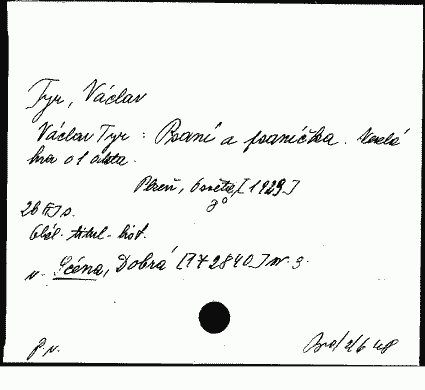 Tyr, Václav
Václav Tyr: Psaní a psaníčka. Veselá
hra o 1 aktu.
Plzeň, Osvěta, [1929]
8°
28 [I] s.
Obál. titul. list.
v. Scéna, Dobrá [172840] nr 3.
p. v.